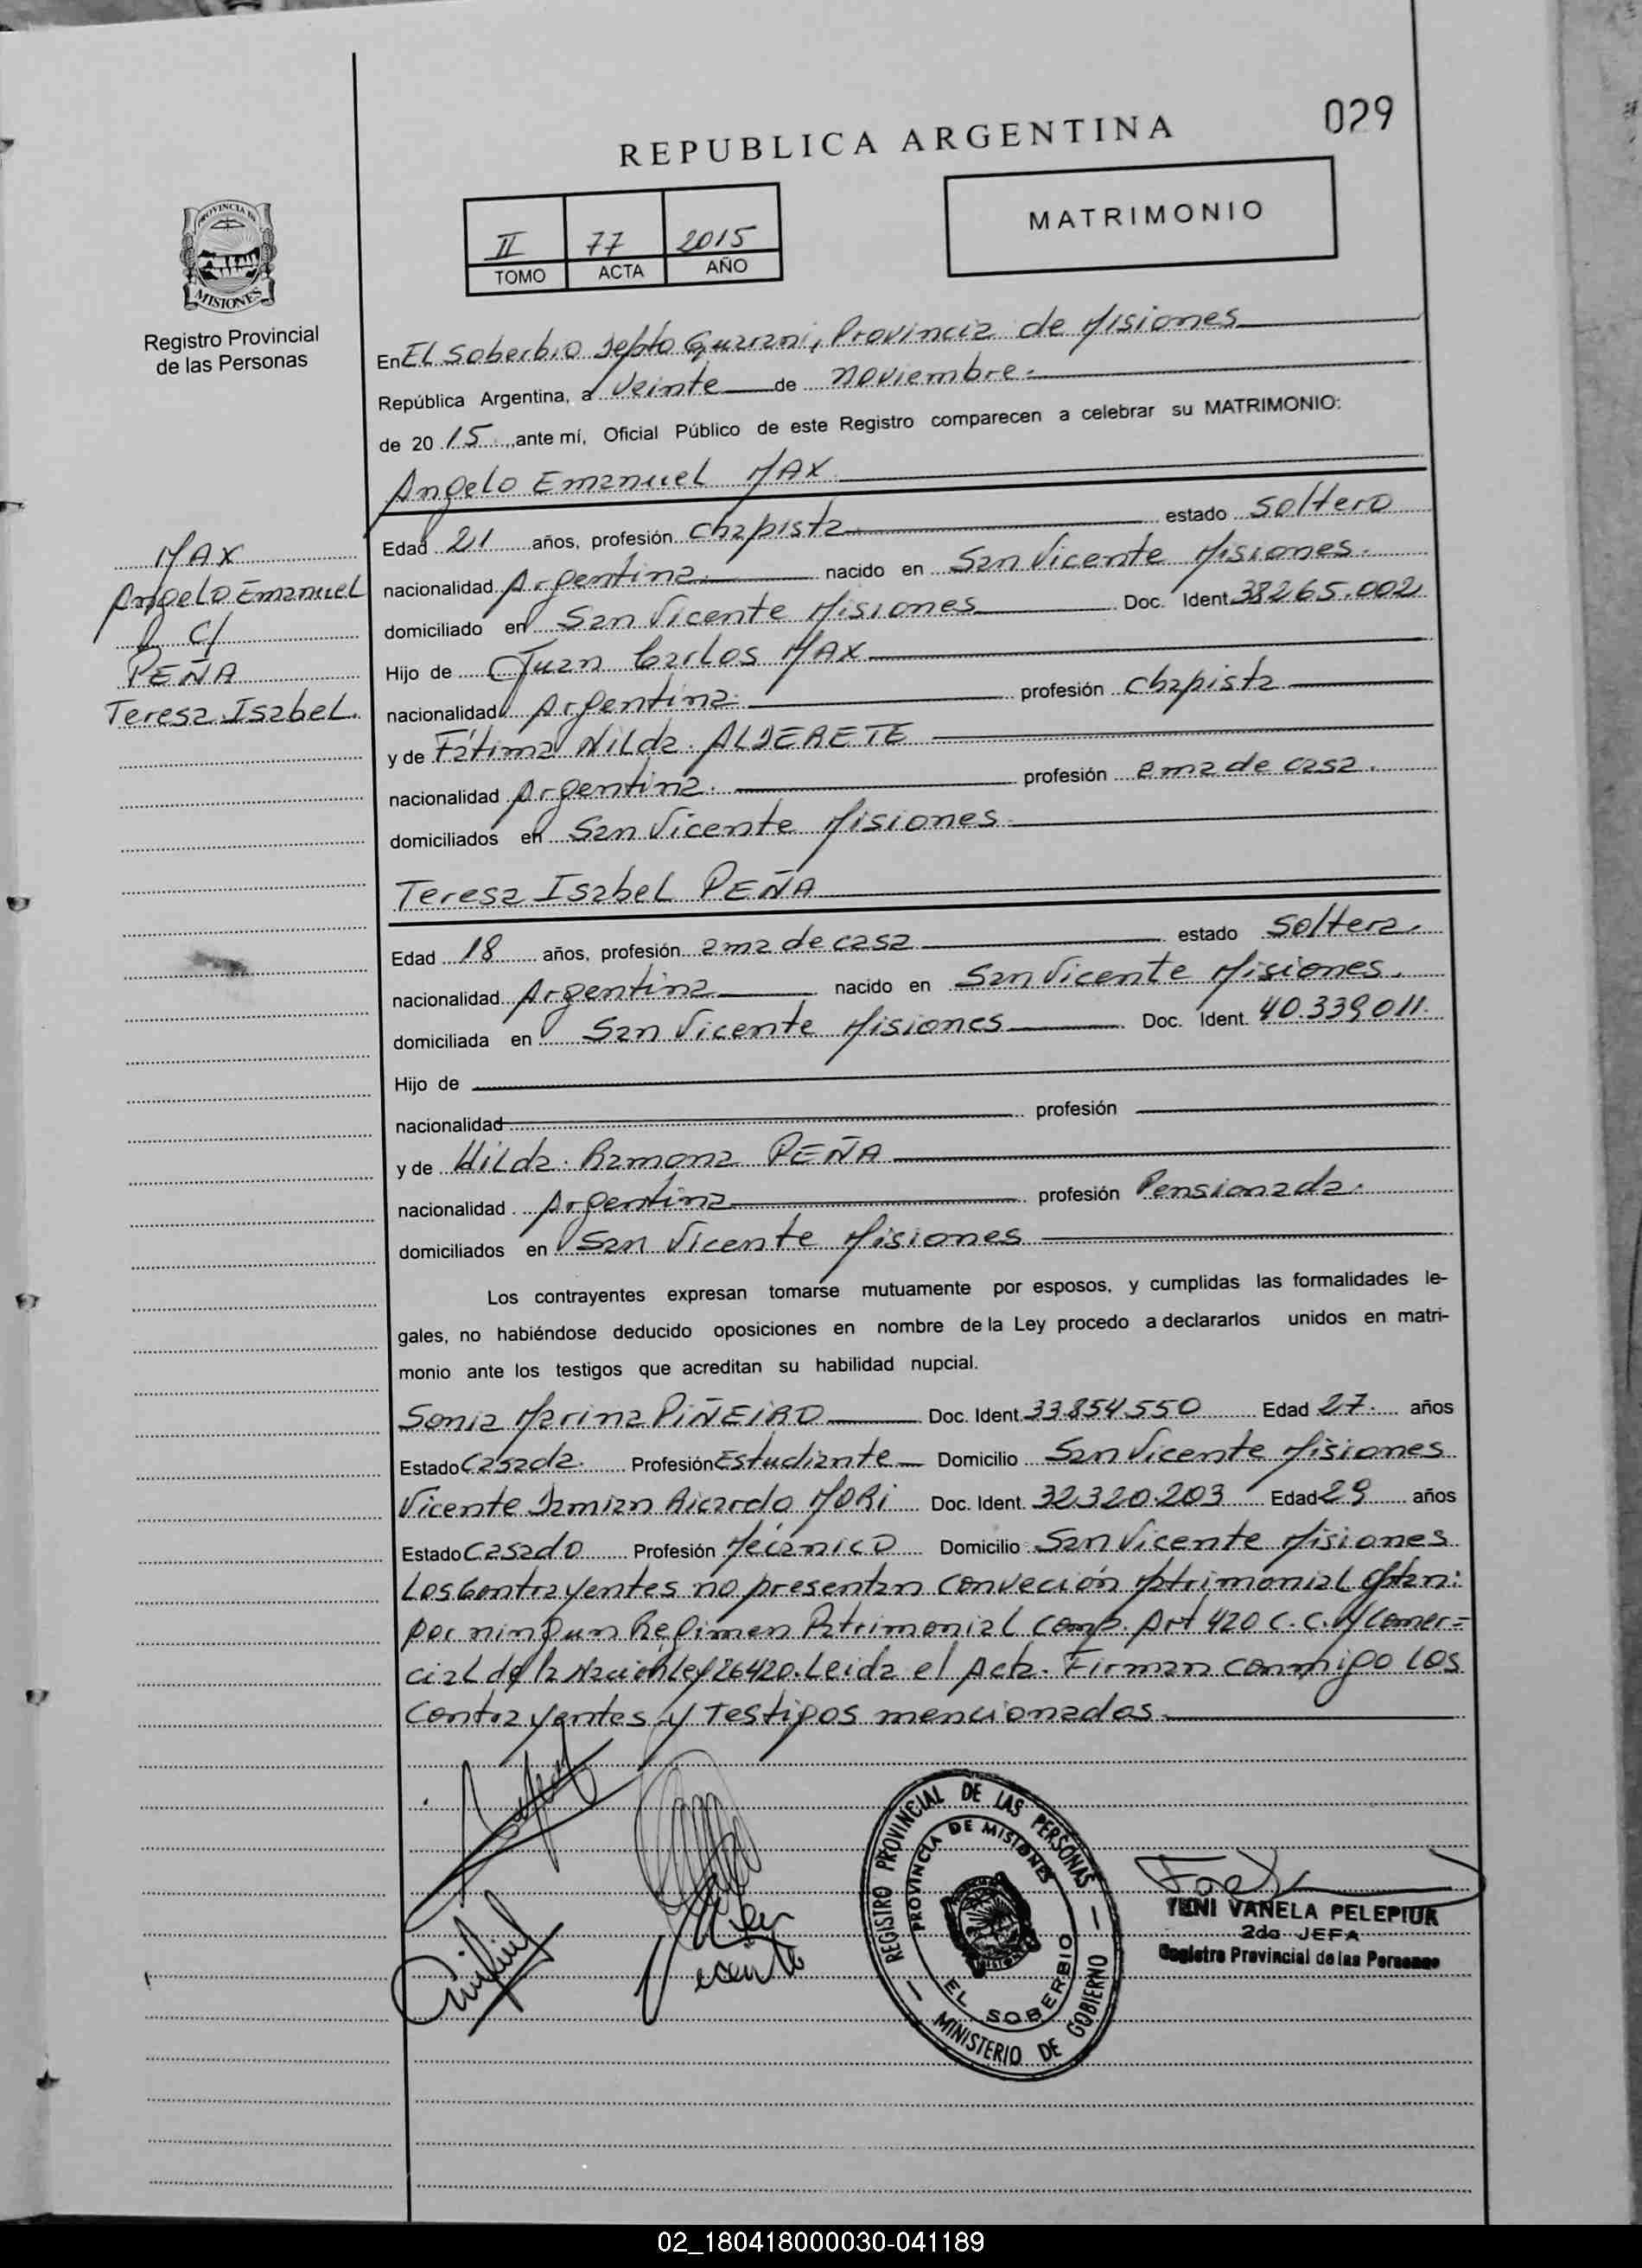 029
REPUBLICA ARGENTINA
II 77 2015
TOMO ACTA AÑO
MATRIMONIO
PROVINCIA DE
MISIONES
Registro Provincial
de las Personas
En El Soberbio Depto Guarani, Provincia de Misiones
República Argentina, a Veinte de noviembre.
de 20 15 ante mí, Oficial Público de este Registro comparecen a celebrar su MATRIMONIO:
Angelo Emanuel MAX
Edad 21 años, profesión Chapista estado Soltero
nacionalidad Argentina nacido en San Vicente Misiones.
domiciliado en San Vicente Misiones Doc. Ident 38265.002
Hijo de Juan Carlos MAX
nacionalidad Argentina profesión Chapista
y de Fátima Nilda ALDERETE
nacionalidad Argentina. profesión ama de casa.
domiciliados en San Vicente Misiones
MAX
Angelo Emanuel
C/
PEÑA
Teresa Isabel.
Teresa Isabel PEÑA
Edad 18 años, profesión ama de casa estado Soltera.
nacionalidad Argentina nacido en San Vicente Misiones.
domiciliada en San Vicente Misiones Doc. Ident. 40.339.011.
Hijo de
nacionalidad profesión
y de Hilda Ramona PEÑA
nacionalidad Argentina profesión Pensionada.
domiciliados en San Vicente Misiones
Los contrayentes expresan tomarse mutuamente por esposos, y cumplidas las formalidades le-
gales, no habiéndose deducido oposiciones en nombre de la Ley procedo a declararlos unidos en matri-
monio ante los testigos que acreditan su habilidad nupcial.
Sonia Marina PIÑEIRO Doc. Ident. 33.854.550 Edad 27. años
Estado Casada. Profesión Estudiante Domicilio San Vicente Misiones
Vicente Damian Ricardo MORi Doc. Ident. 32.320.203 Edad 29 años
Estado Casado Profesión Mecánico Domicilio San Vicente Misiones
Los Contrayentes no presentan conveción ptrimonial Optan:
por ningun Regimen Patrimonial comp. Art 420 C.C. y Comer=
cial de la Nación Ley 26420. Leida el Acta. Firman conmigo los
Contrayentes y Testigos mencionados
REGISTRO PROVINCIAL DE LAS PERSONAS
PROVINCIA DE MISIONES
EL SOBERBIO
MINISTERIO DE GOBIERNO
YENI VANELA PELEPIUK
2da JEFA
Registro Provincial de las Personas
02_180418000030-041189